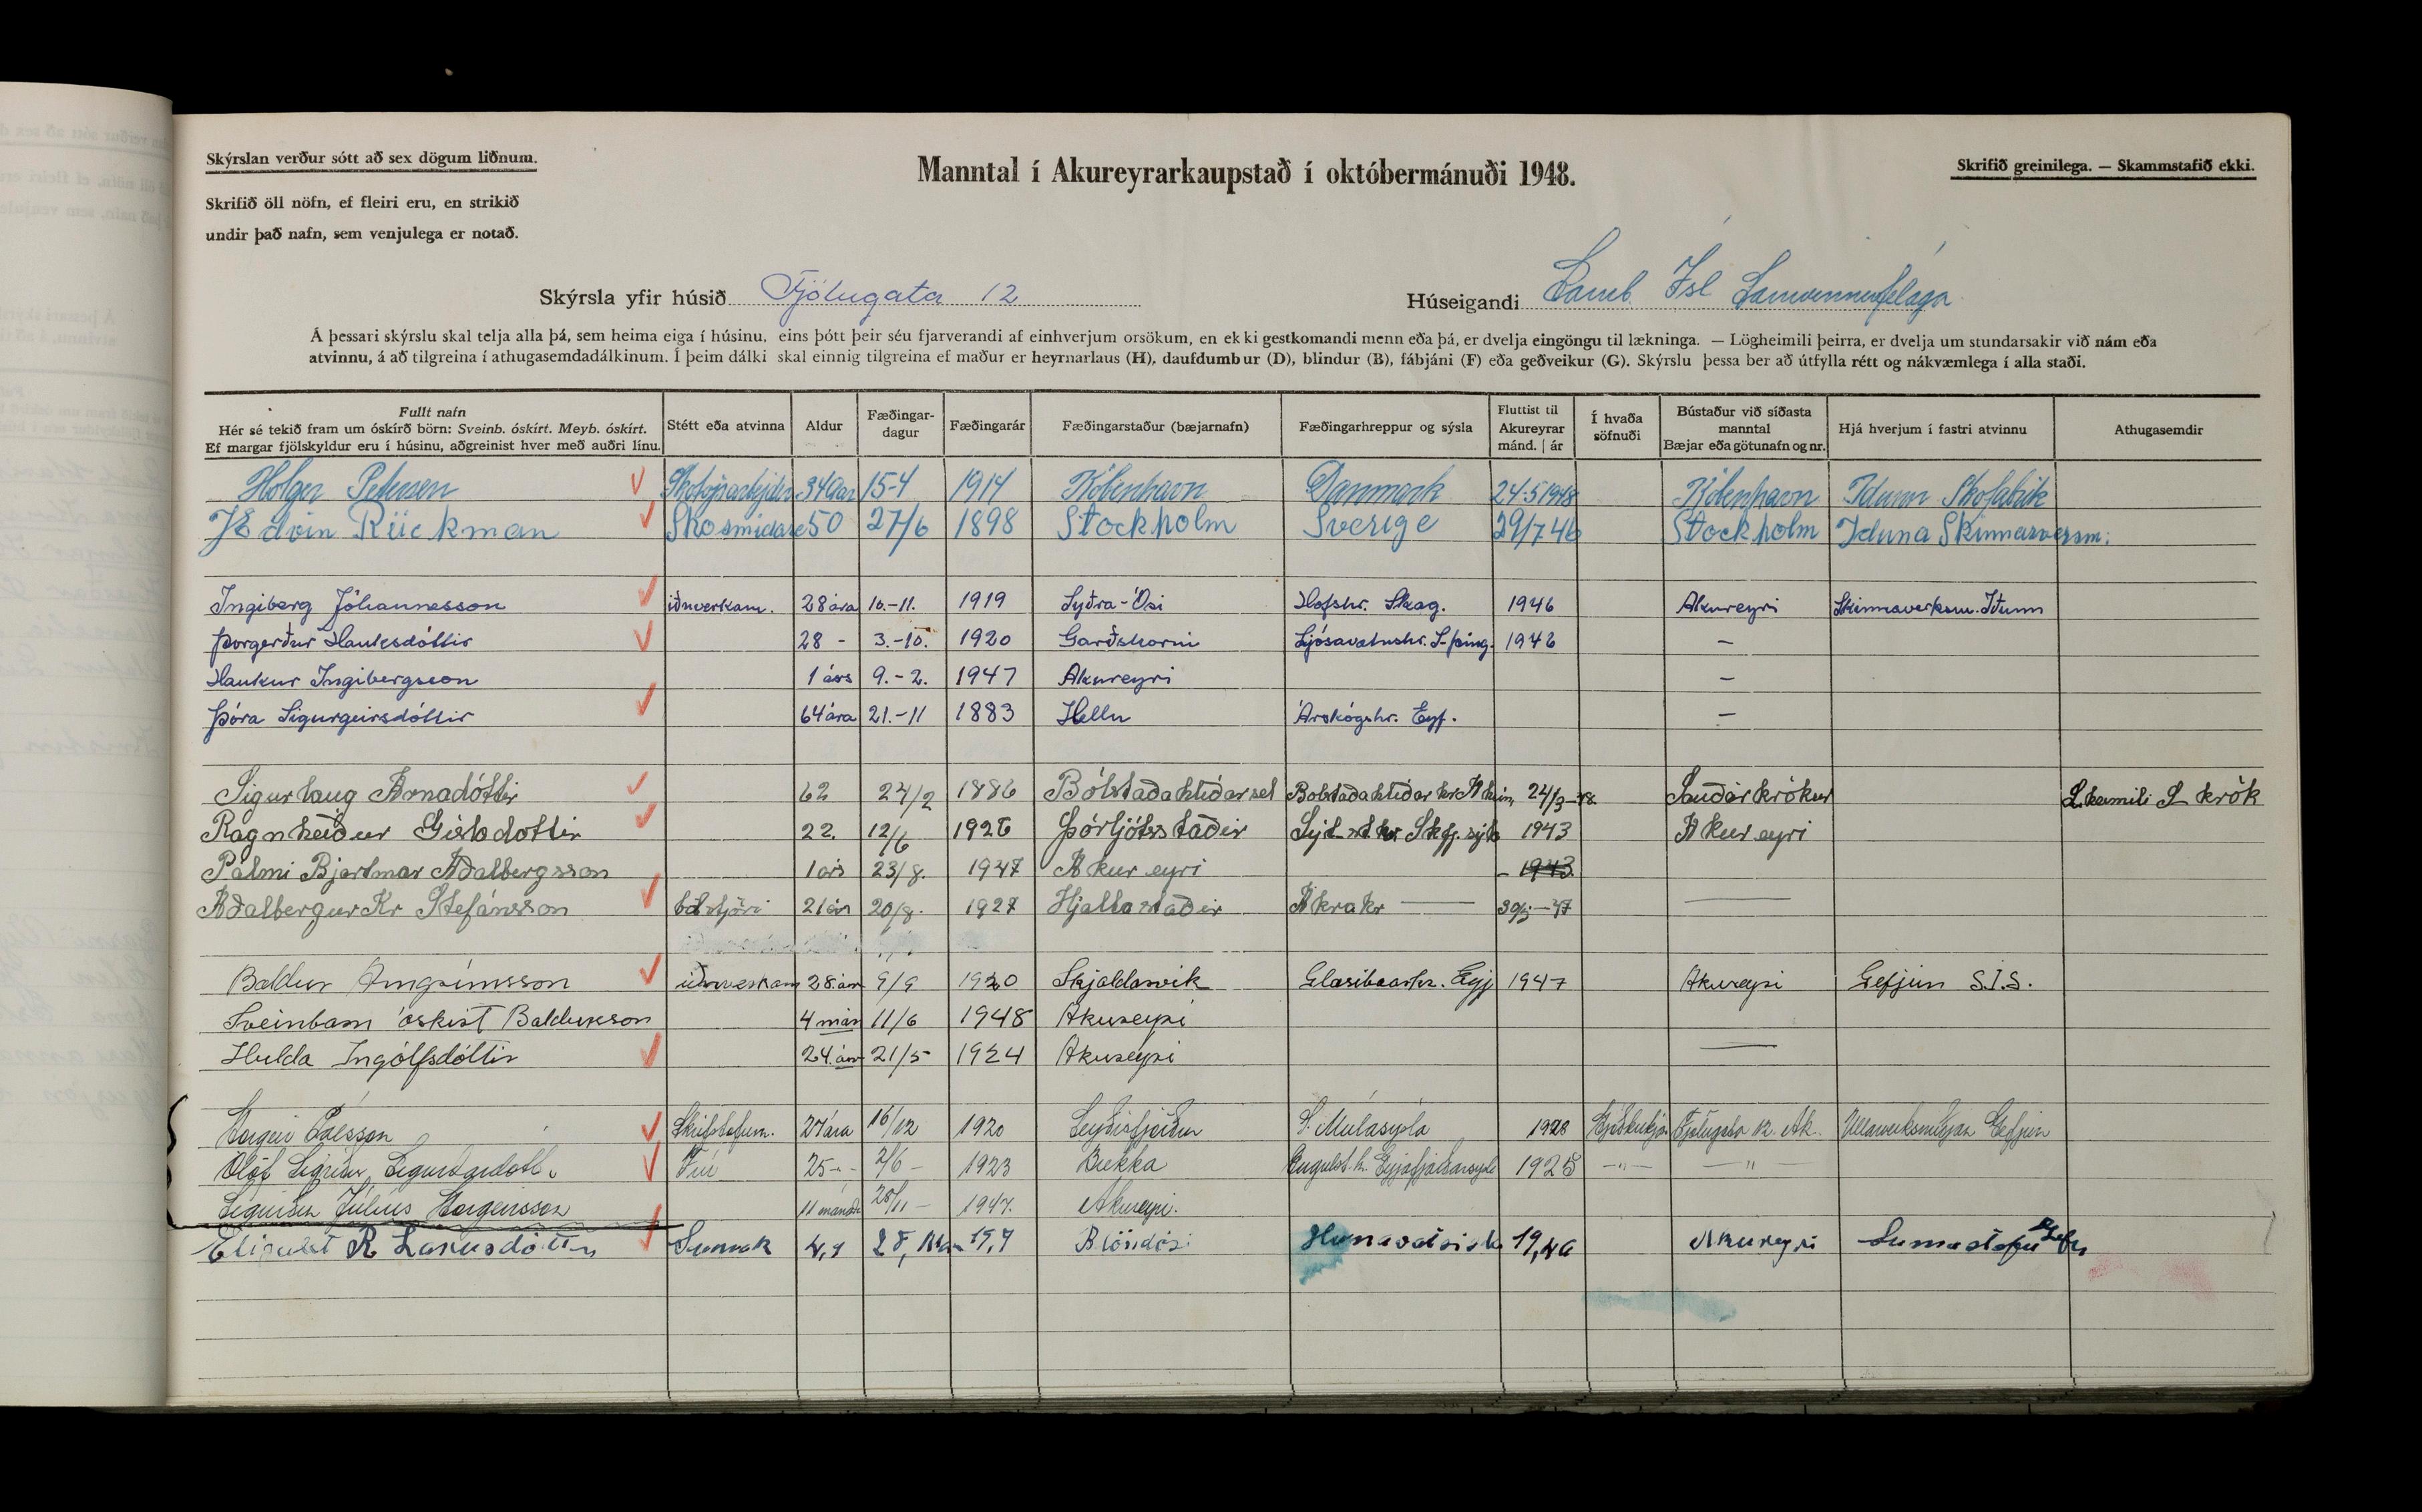 Skýrslan verður sótt að sex dögum liðnum.
Manntal í Akureyrarkaupstað í októbermánuði 1948.
Skrifið greinilega. — Skammstafið ekki.
Skrifið öll nöfn, ef fleiri eru, en strikið
undir það nafn, sem venjulega er notað.
Skýrsla yfir húsið Fjólugata 12
Húseigandi Samb. Ísl Samvinnufélaga
Á þessari skýrslu skal telja alla þá, sem heima eiga í húsinu, eins þótt þeir séu fjarverandi af einhverjum orsökum, en ekki gestkomandi menn eða þá, er dvelja eingöngu til lækninga. — Lögheimili þeirra, er dvelja um stundarsakir við nám eða
atvinnu, á að tilgreina í athugasemdadálkinum. Í þeim dálki skal einnig tilgreina ef maður er heyrnarlaus (H), daufdumbur (D), blindur (B), fábjáni (F) eða geðveikur (G). Skýrslu þessa ber að útfylla rétt og nákvæmlega í alla staði.
Fullt nafn
Hér sé tekið fram um óskírð börn: Sveinb. óskírt. Meyb. óskírt.
Ef margar fjölskyldur eru í húsinu, aðgreinist hver með auðri línu.
Stétt eða atvinna
Aldur
Fæðingar-
dagur
Fæðingarár
Fæðingarstaður (bæjarnafn)
Fæðingarhreppur og sýsla
Fluttist til
Akureyrar
mánd. | ár
Í hvaða
söfnuði
Bústaður við síðasta
manntal
Bæjar eða götunafn og nr.
Hjá hverjum í fastri atvinnu
Athugasemdir
Holger Petersen 34 Aar 15-4 1914 Köbenhavn Danmark 24-5 1948 Köbenhavn Idunn Skofabrik
Edvin Rückman Skosmidare 50 27/6 1898 Stockholm Sverige 29/7 46 Stockholm Iduna Skinnarversm.
Ingiberg Jóhannesson iðnverkam. 28 ára 10.-11. 1919 Syðra-Ósi Hofshr. Skag. 1946 Akureyri Skinnaverksm. Iðunn
Þorgerður Hauksdóttir 28 - 3.-10. 1920 Garðshorni Ljósavatnshr. S-þing. 1946 —
Haukur Ingibergsson 1 árs 9.-2. 1947 Akureyri —
Þóra Sigurgeirsdóttir 64 ára 21.-11 1883 Hellu Árskógshr. Eyf. —
Sigurlaug Árnadóttir 62 24/2 1886 Bólstaðahlíðarsel Bolstaðahlíðar hr 24/3-48. Sauðárkrókur L.heimili S krók
Ragnheiður Gísladottir 22. 12/6 1926 Þorljótsstaðir 1943 Akureyri
Pálmi Bjartmar Aðalbergsson 1 árs 23/8. 1947 Akureyri 1943
Aðalbergur Kr Stefánsson bílstjóri 21 árs 20/8. 1927 Hjaltastaðir Akrahr —
Baldur Arngrímsson 28. ára 9/9 1920 Skjaldarvík Glæsibæarhr. Eyj 1947 Akureyri Gefjun S.Í.S.
Sveinbarn óskírt Baldursson 4 mán 11/6 1948 Akureyri
Hulda Ingólfsdóttir 24. ára 21/5 1924 Akureyri —
Pálsson Skrifstofum. 27 ára 16/12 1920 Seyðisfjörður S. Múlasýsla 1928 Fjólugata 12. Ak. Ullarverksmiðjan Gefjun
Ólöf Frú 25 — 2/6 — 1923 Brekka Öngulst.hr. Eyjafjarðarsýsla 1928 —"— —"—
Júlíus 11 mánaða 28/11 — 1947. Akureyri.
R Lárusdóttir Blöndósi Akureyri